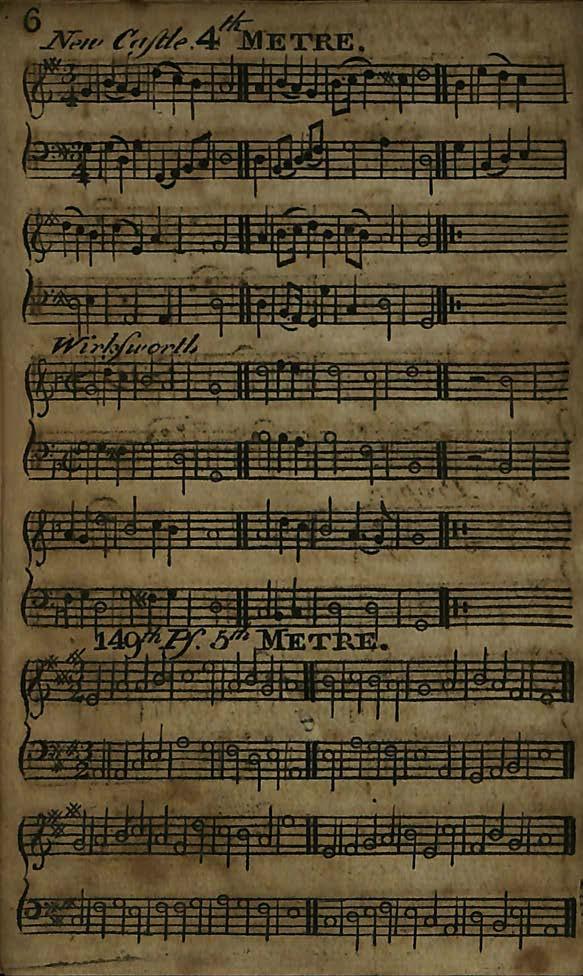 6
New Caſtle. 4th METRE.
Wirkſworth
149th Pſ. 5th METRE.